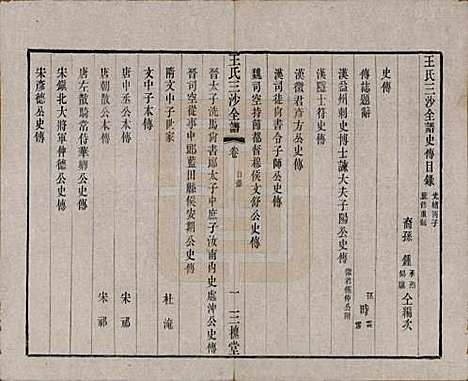 王氏三沙全譜史傳目錄
裔孫 鍾 仝編次
史傳
傳誌題辭
漢益州刺史博士諫大夫子陽公史傳
漢隱士君公史傳
漢徵君彥方公史傳
漢司徒尚書令子師公史傳
魏司空持節都督穆侯文舒公史傳
王氏三沙全譜 卷 目錄 一 三槐堂
晉太子洗馬尚書郎太子中庶子汝南內史處沖公史傳
晉司空從事中郎藍田縣侯安期公史傳
隋文中子世家 杜淹
文中子本傳
唐中丞公本傳 宋祁
唐朝散公本傳
唐左散騎常侍華卿公史傳 宋祁
宋鎮北大將軍仲德公史傳
宋彥德公史傳